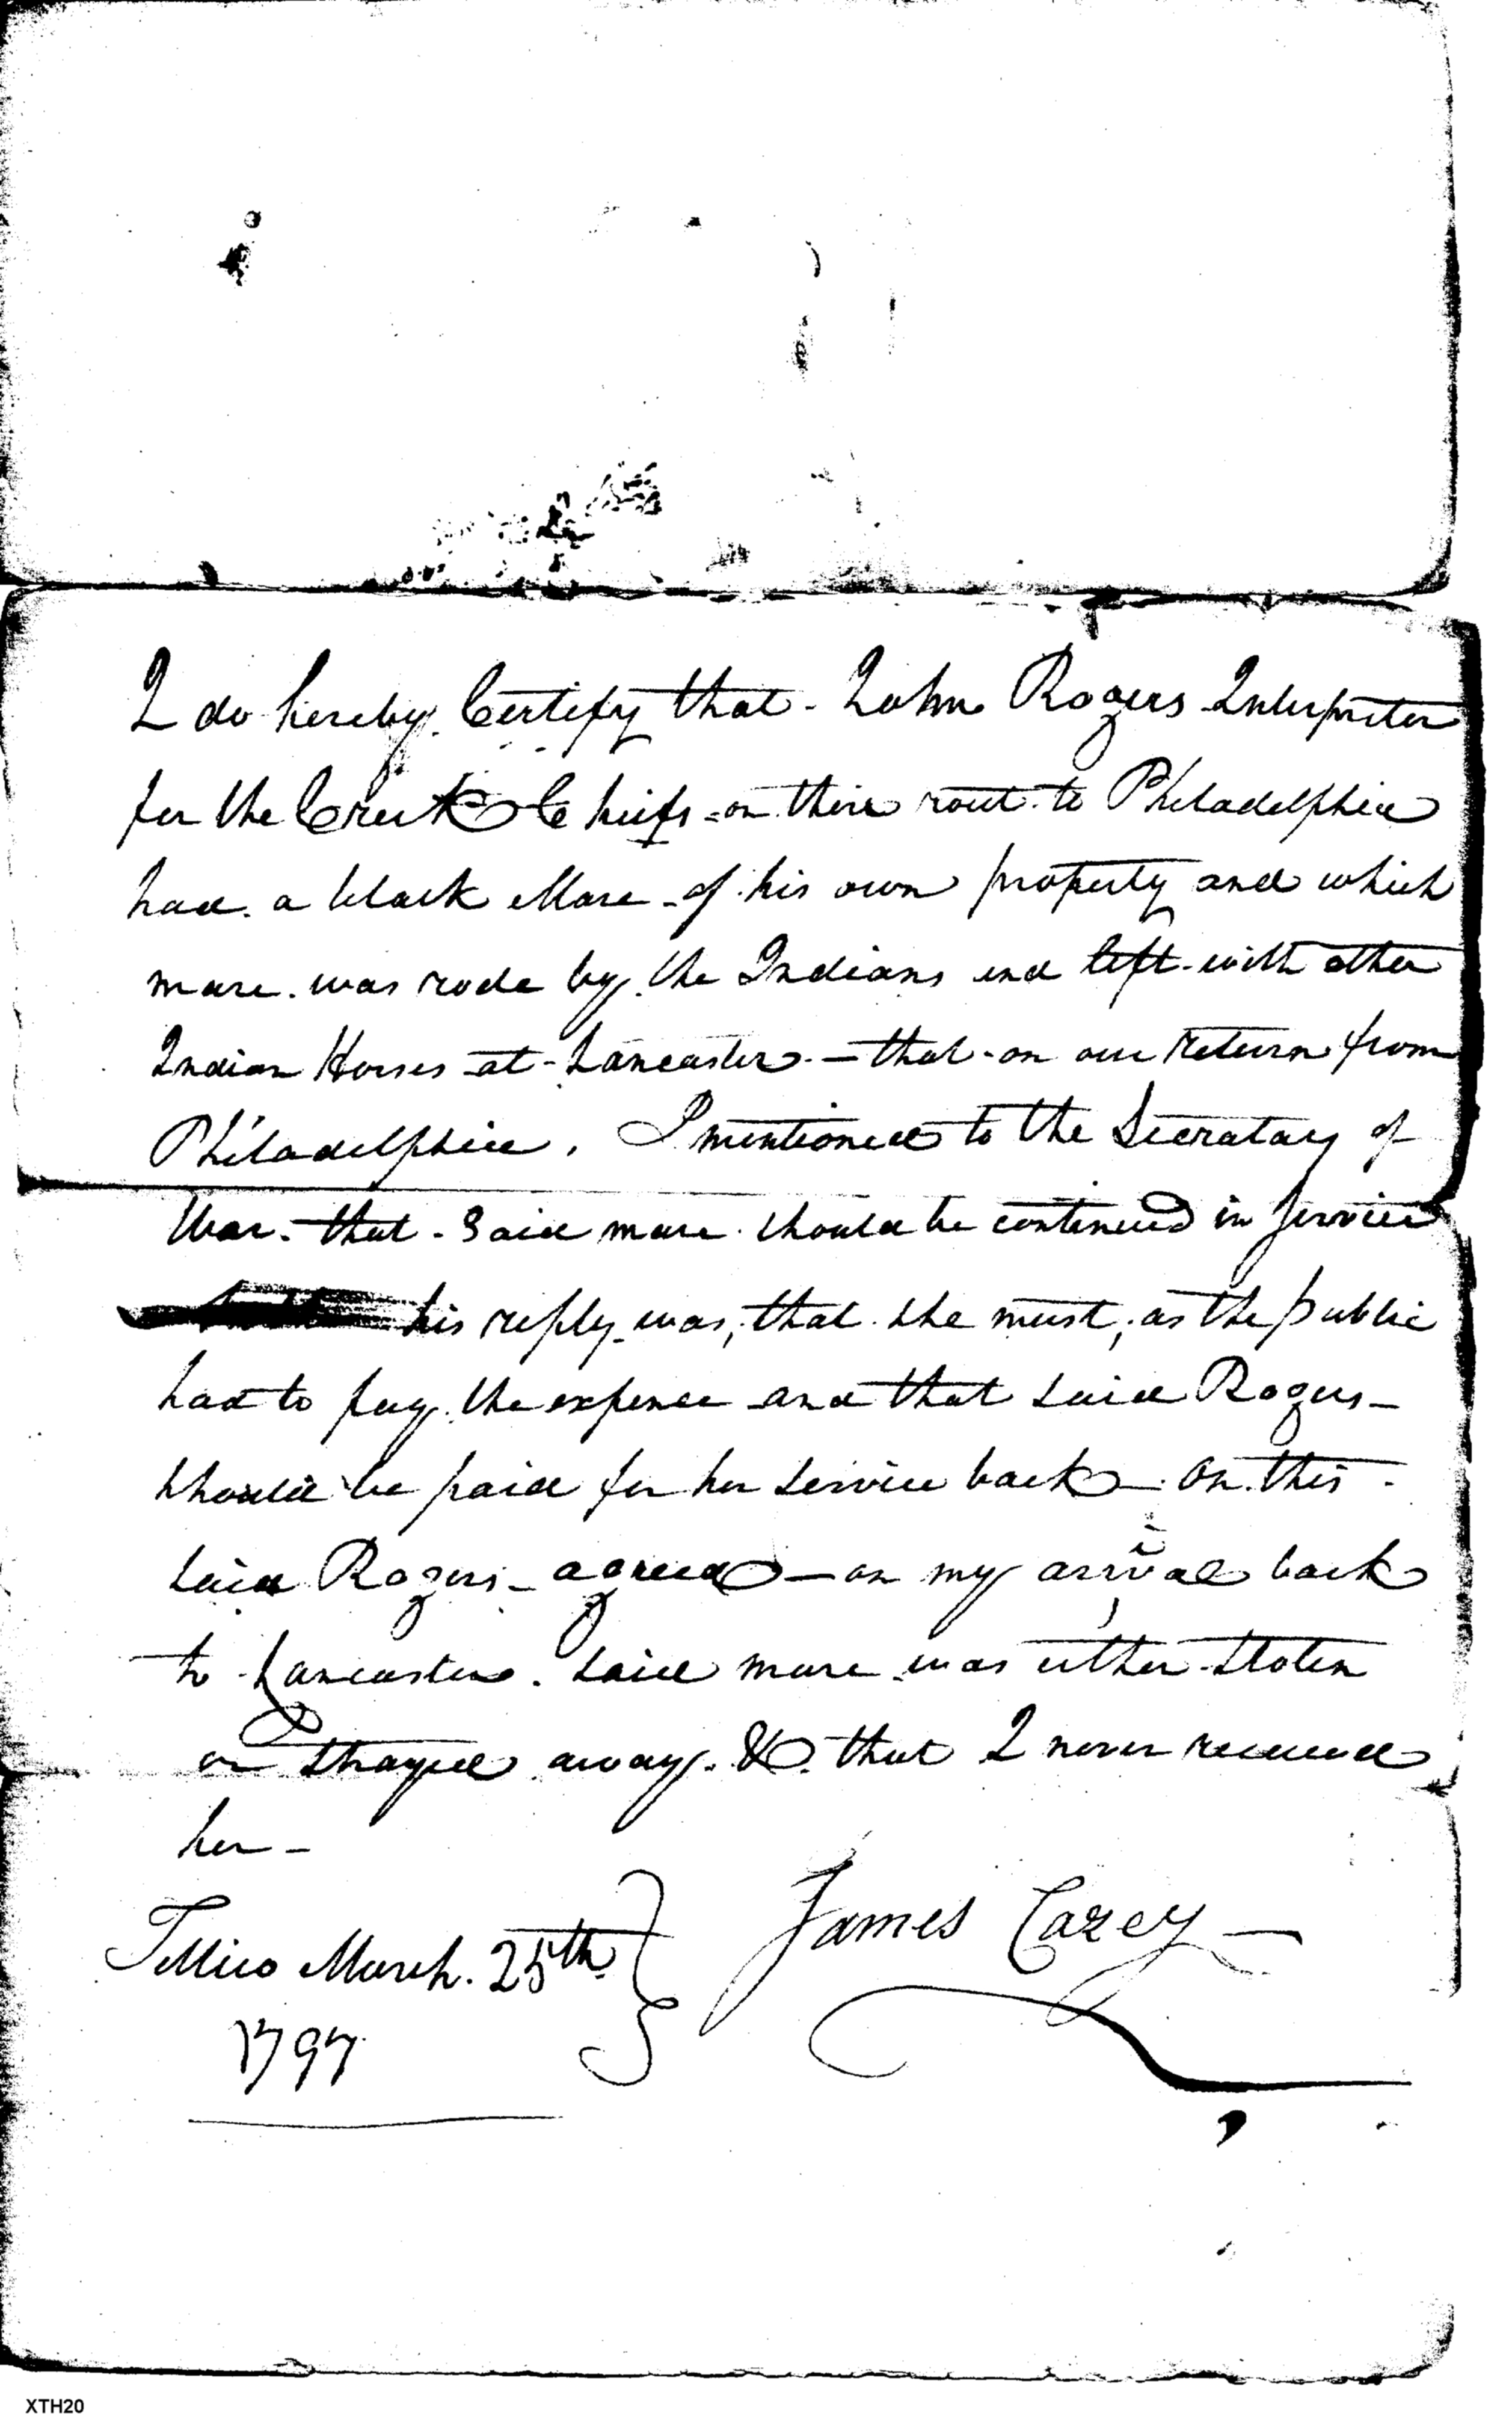 I do hereby Certify that - John Rogers Interpreter
for the Creek Cheifs - on their rout to Philadelphia
had a black Mare - of his own property and which
mare was rode by the Indians and left with other
Indian Horses at Lancaster - that on our return from
Philadelphia, I mentioned to the Secratary of
War - that - said mare should be continued in service
his reply was, that she must, as the public
had to pay the expence and that said Rogers -
should be paid for her service back - On this -
said Rogers - agreed - on my arival back
to Lancaster. said mare was either stolen
or strayed away. & that I never received
her -
Tellico March. 25th
1797
James Carey -
XTH20